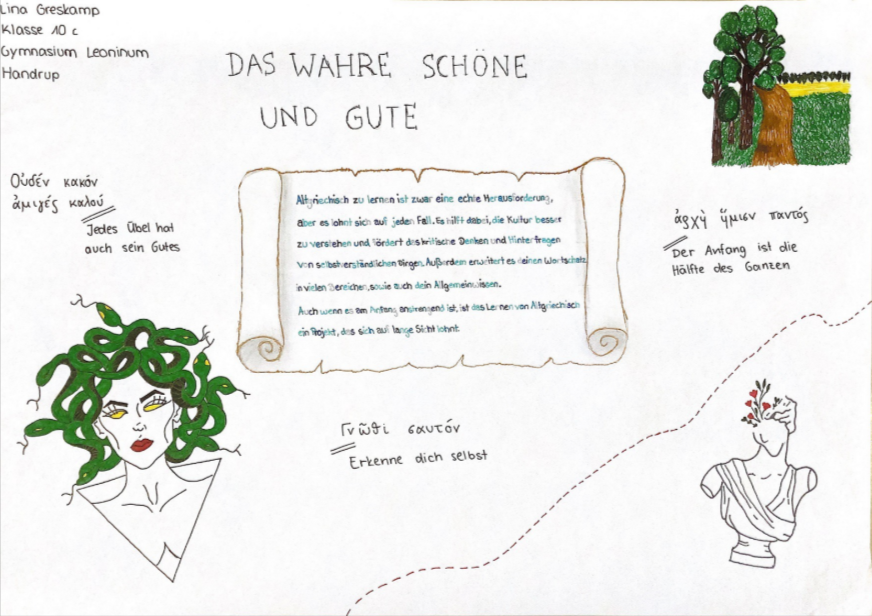 Lina Greskamp
Klasse 10 c
Gymnasium Leoninum
Handrup
DAS WAHRE SCHÖNE
UND GUTE
Οὐδέν κακόν
ἀμιγές καλού
Jedes Übel hat
auch sein Gutes
Altgriechisch zu lernen ist zwar eine echte Herausforderung,
aber es lohnt sich auf jeden Fall. Es hilft dabei, die Kultur besser
zu verstehen und fördert das kritische Denken und Hinterfragen
von selbstverständlichen Dingen. Außerdem erweitert es deinen Wortschatz
in vielen Bereichen, sowie auch dein Allgemeinwissen.
Auch wenn es am Anfang anstrengend ist, ist das Lernen von Altgriechisch
ein Projekt, das sich auf lange Sicht lohnt.
ἀρχὴ ἥμισυ παντός
Der Anfang ist die
Hälfte des Ganzen
Γνῶθι σαυτόν
Erkenne dich selbst